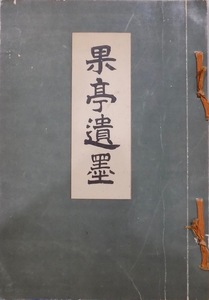 果亭遺墨